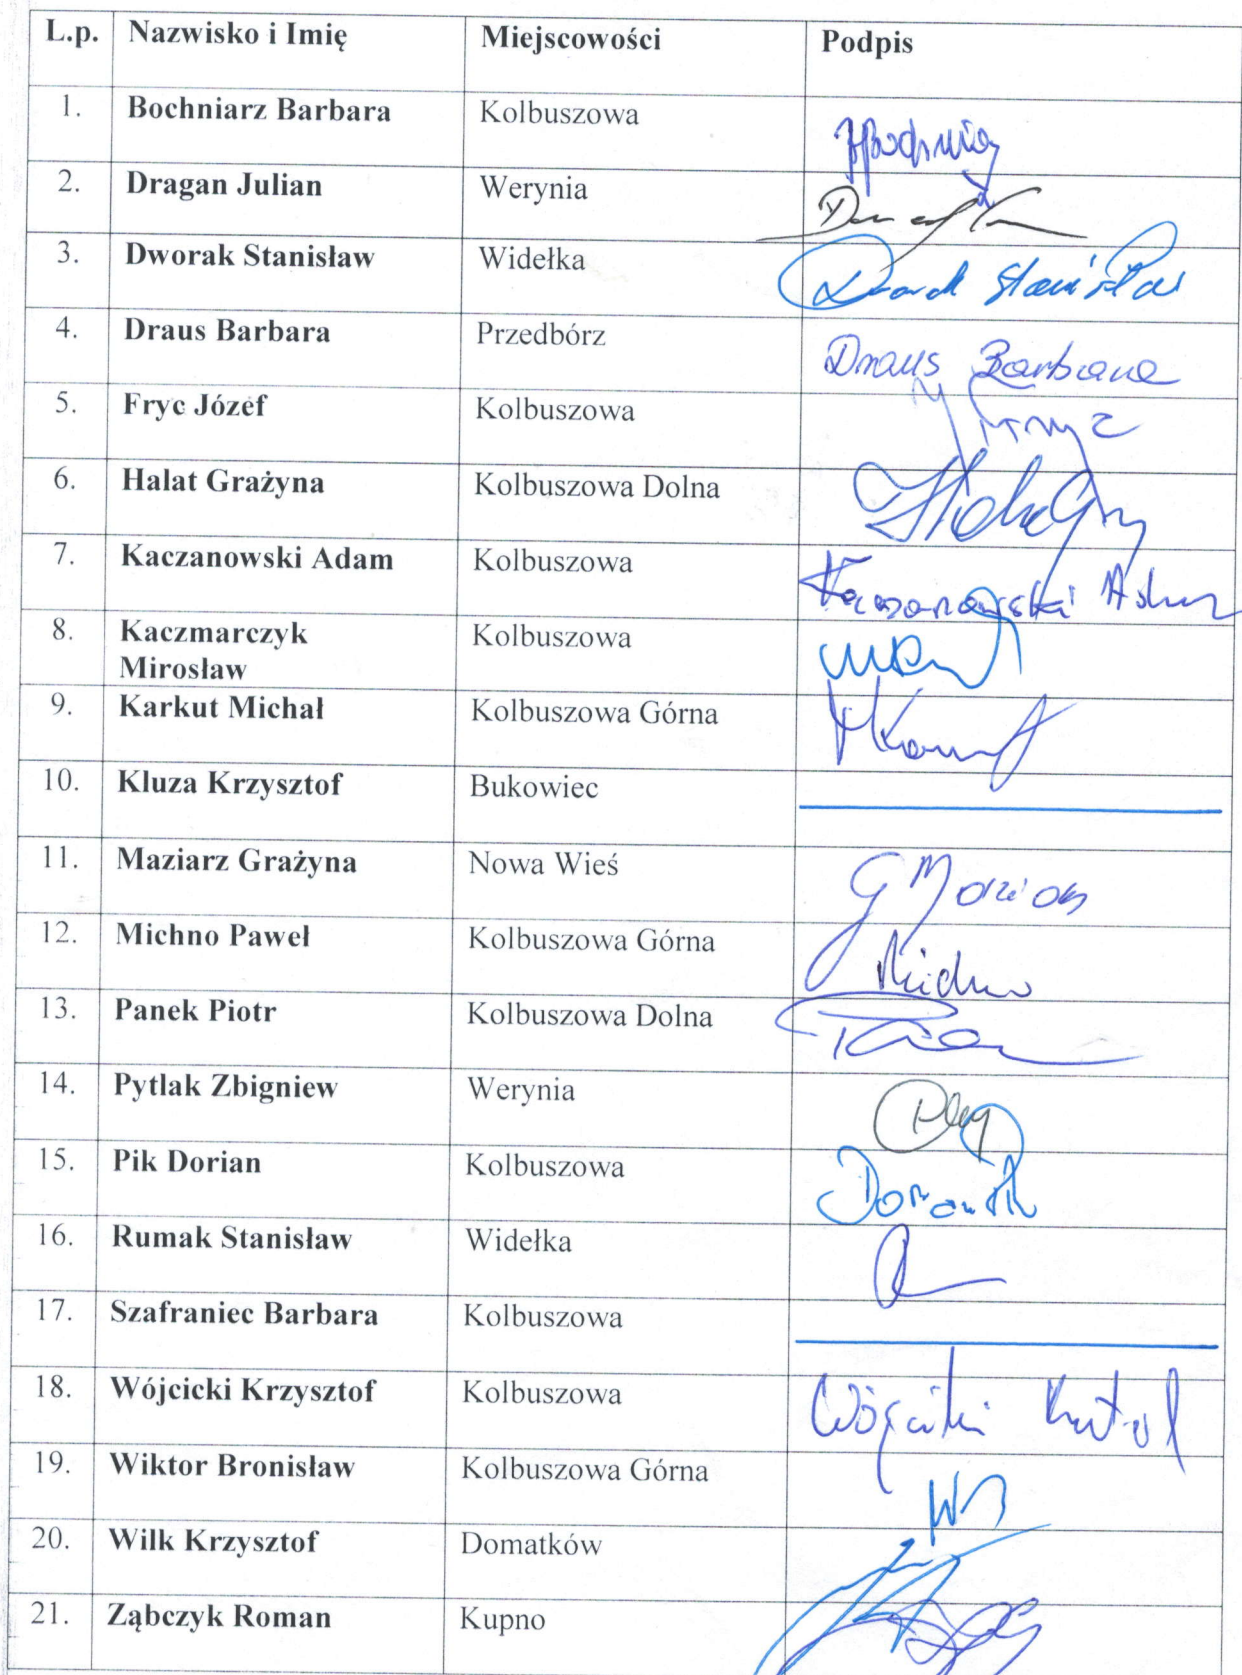 L.p. Nazwisko i Imię Miejscowości Podpis
1. Bochniarz Barbara Kolbuszowa
2. Dragan Julian Werynia
3. Dworak Stanisław Widełka Dworak Stanisław
4. Draus Barbara Przedbórz Draus Barbara
5. Fryc Józef Kolbuszowa Fryc
6. Halat Grażyna Kolbuszowa Dolna
7. Kaczanowski Adam Kolbuszowa Kaczanowski Adam
8. Kaczmarczyk Kolbuszowa
Mirosław
9. Karkut Michał Kolbuszowa Górna
10. Kluza Krzysztof Bukowiec
11. Maziarz Grażyna Nowa Wieś G Maziarz
12. Michno Paweł Kolbuszowa Górna Michno
13. Panek Piotr Kolbuszowa Dolna
14. Pytlak Zbigniew Werynia
15. Pik Dorian Kolbuszowa
16. Rumak Stanisław Widełka
17. Szafraniec Barbara Kolbuszowa
18. Wójcicki Krzysztof Kolbuszowa Wójcicki
19. Wiktor Bronisław Kolbuszowa Górna WB
20. Wilk Krzysztof Domatków
21. Ząbczyk Roman Kupno